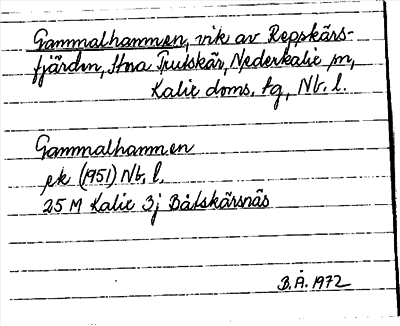 Gammalhamnen, vik av Repskärs-
fjärden, Stora Trutskär, Nederkalix sn,
Kalix doms. tg, Nb. l.
Gammalhamnen
ek (1951) Nb. l.
25 M Kalix 3j Båtskärsnäs
B.Å. 1972